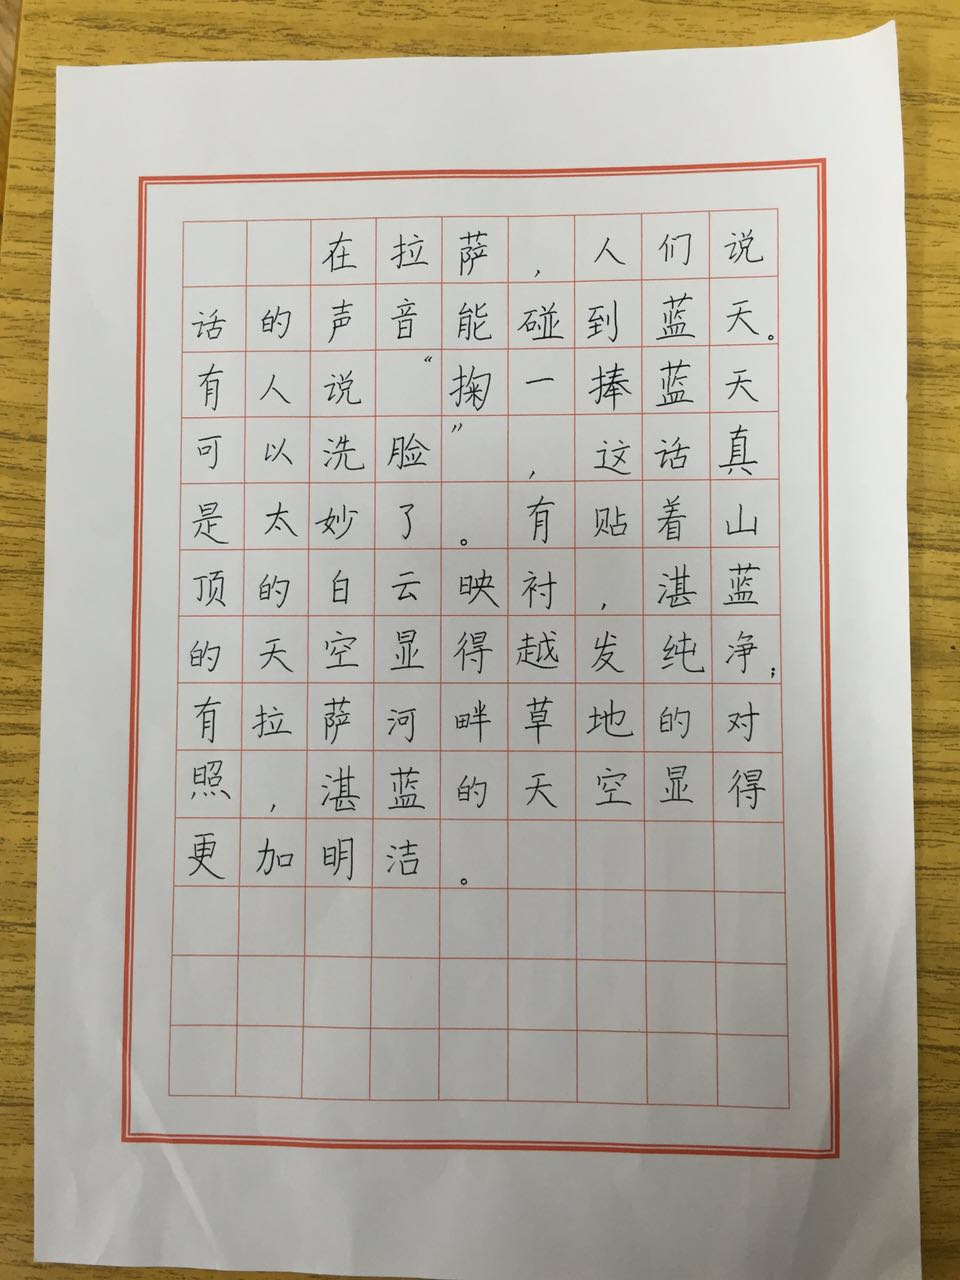 在拉萨，人们说
话的声音能碰到蓝天。
有人说“掬一捧蓝天
可以洗脸”，这话真
是太妙了。有贴着山
顶的白云映衬，湛蓝
的天空显得越发纯净；
有拉萨河畔草地的对
照，湛蓝的天空显得
更加明洁。